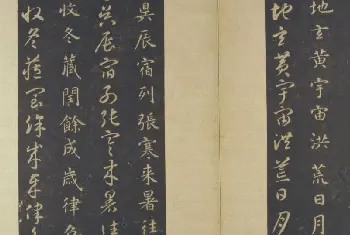 地玄黃宇宙洪荒日月
地玄黃宇宙洪荒日月
昃辰宿列張寒来暑往
昃辰宿列張寒来暑往
收冬藏閏餘成歲律召
收冬藏閏餘成歲律